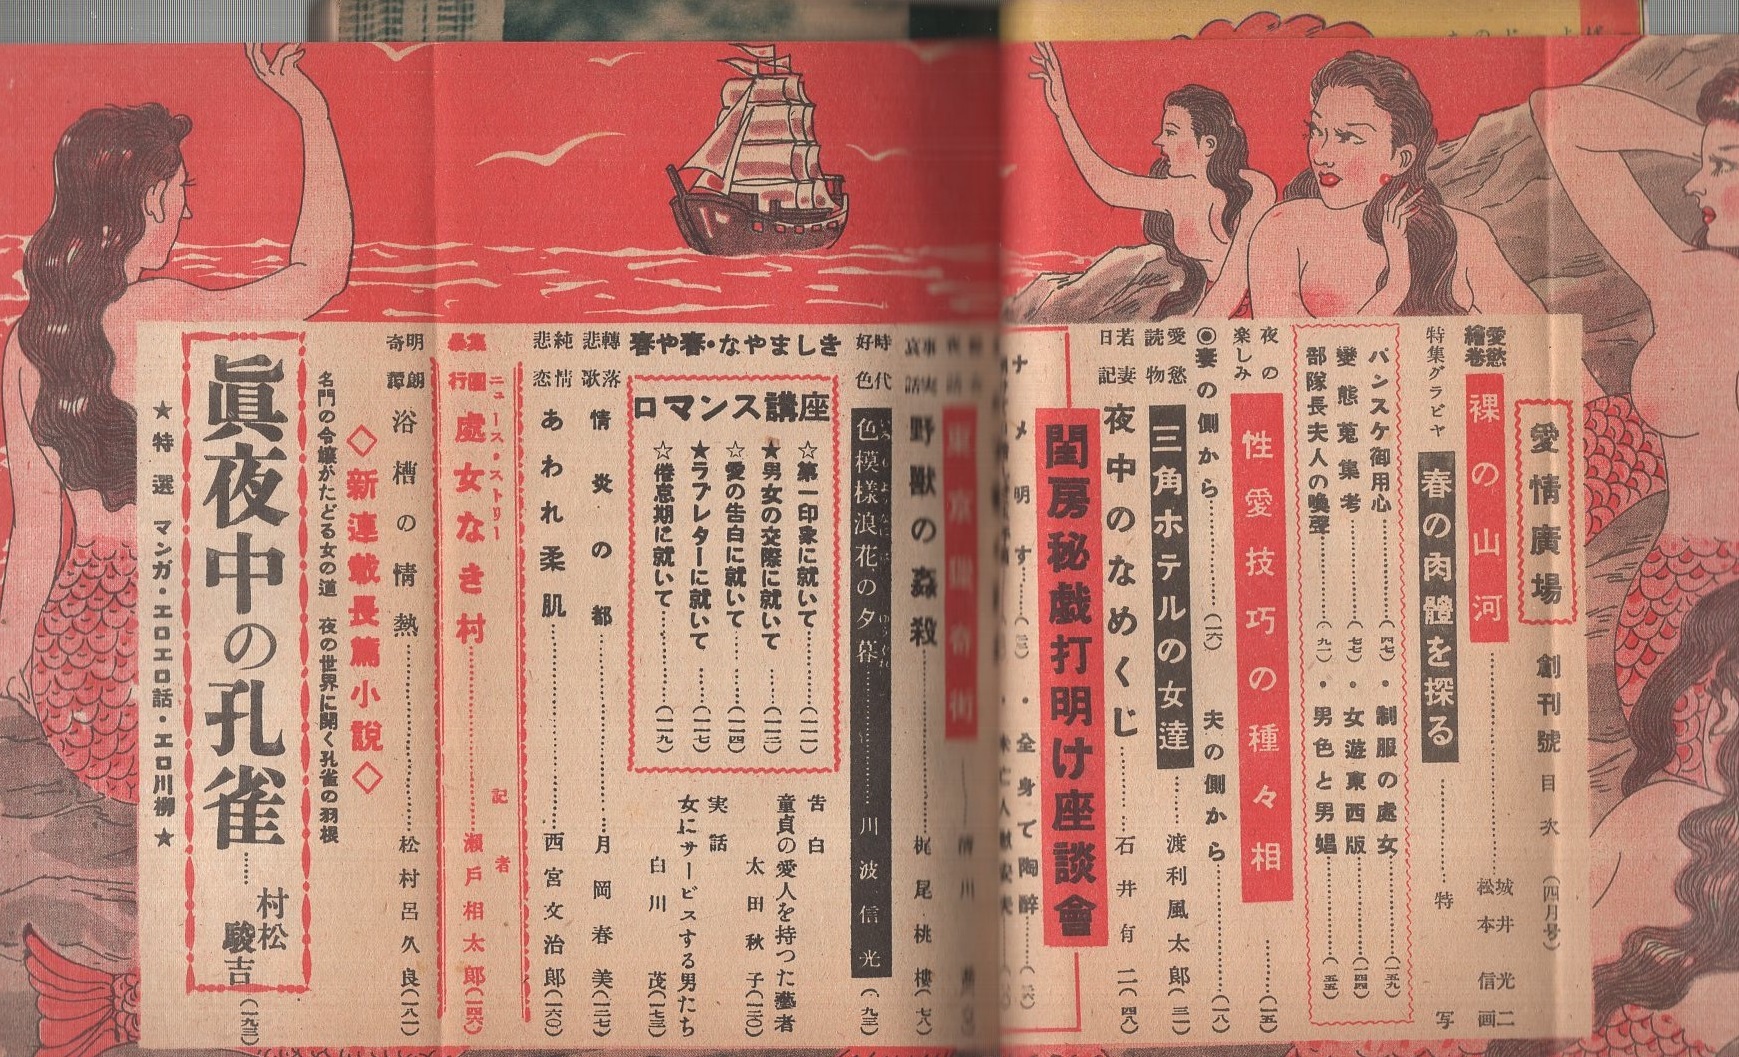 愛情廣場 創刊號 目次 (四月号)
愛慾繪巻 裸の山河 城井光二 松本信画
特集グラビヤ 春の肉體を探る 特写
パンスケ御用心 (四七)・制服の處女 (一五九)
變態蒐集考 (七七)・女遊東西版 (一四四)
部隊長夫人の喚聲 (九一)・男色と男娼 (五五)
夜の楽しみ 性愛技巧の種々相 (一五)
◉妻の側から (一六) 夫の側から (一八)
愛慾読物 三角ホテルの女達 渡利風太郎 (三一)
若妻日記 夜中のなめくじ 石井有二 (四八)
閨房秘戯打明け座談會
ナメ明す ・全身で陶醉
事実哀話 野獸の姦殺 梶尾桃樓 (七八)
時代好色 色模様浪花の夕暮 川波信光 (九三)
春や春・なやましき
ロマンス講座
☆第一印象に就いて (一一二)
★男女の交際に就いて (一一三)
☆愛の告白に就いて (一一四)
★ラブレターに就いて (一一七)
☆倦怠期に就いて (一一九)
告白
童貞の愛人を持つた藝者
太田秋子 (一三〇)
実話
女にサービスする男たち
白川茂 (一七三)
轉落悲歌 情炎の都 月岡春美 (一三七)
純情悲恋 あわれ柔肌 西宮文治郎 (一六〇)
ニュース・ストリー
集團暴行 處女なき村 記者 瀬戸相太郎 (一四六)
明朗奇譚 浴槽の情熱 松村呂久良 (一八一)
◇新連載長篇小説◇
名門の令嬢がたどる女の道 夜の世界に開く孔雀の羽根
眞夜中の孔雀 村松駿吉 (一九三)
★特選 マンガ・エロエロ話・エロ川柳★